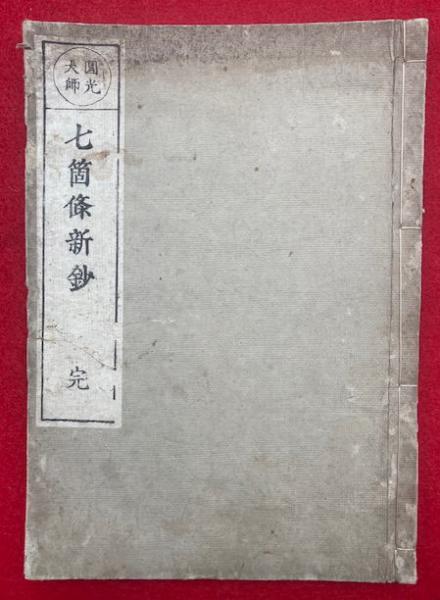 圓光
大師
七箇條新鈔
完